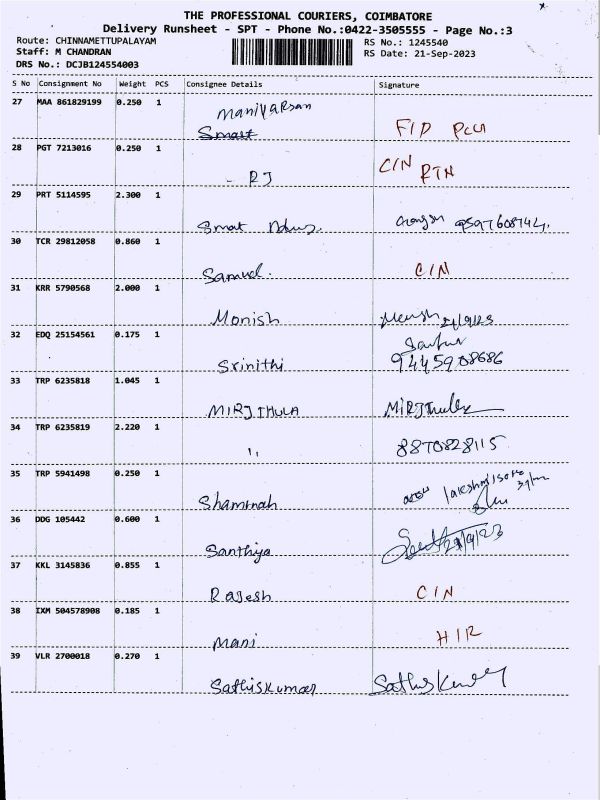 THE PROFESSIONAL COURIERS, COIMBATORE
Delivery Runsheet - SPT - Phone No.:0422-3505555 - Page No.:3
Route: CHINNAMETTUPALAYAM RS No.: 1245540
Staff: M CHANDRAN RS Date: 21-Sep-2023
DRS No.: DCJB124554003
S No Consignment No Weight PCS Consignee Details Signature
27 MAA 861829199 0.250 1 Manivarsan
Smart F/D
28 PGT 7213016 0.250 1 - RJ C/N RTN
29 PRT 5114595 2.300 1 Smat 9597608742
30 TCR 29812058 0.860 1 Samuel. C/N
31 KRR 5790568 2.000 1 Monish 21/9/23
32 EDQ 25154561 0.175 1 Srinithi 9445908686
33 TRP 6235818 1.045 1 MIRJTHULA MIRJThula
34 TRP 6235819 2.220 1 ,, 8870828115
35 TRP 5941498 0.250 1 Shaminah
36 DDG 105442 0.600 1 Santhiya 21/9/23
37 KKL 3145836 0.855 1 Rajesh C/N
38 IXM 504578908 0.185 1 Mani H/R
39 VLR 2700018 0.270 1 Sathiskumar